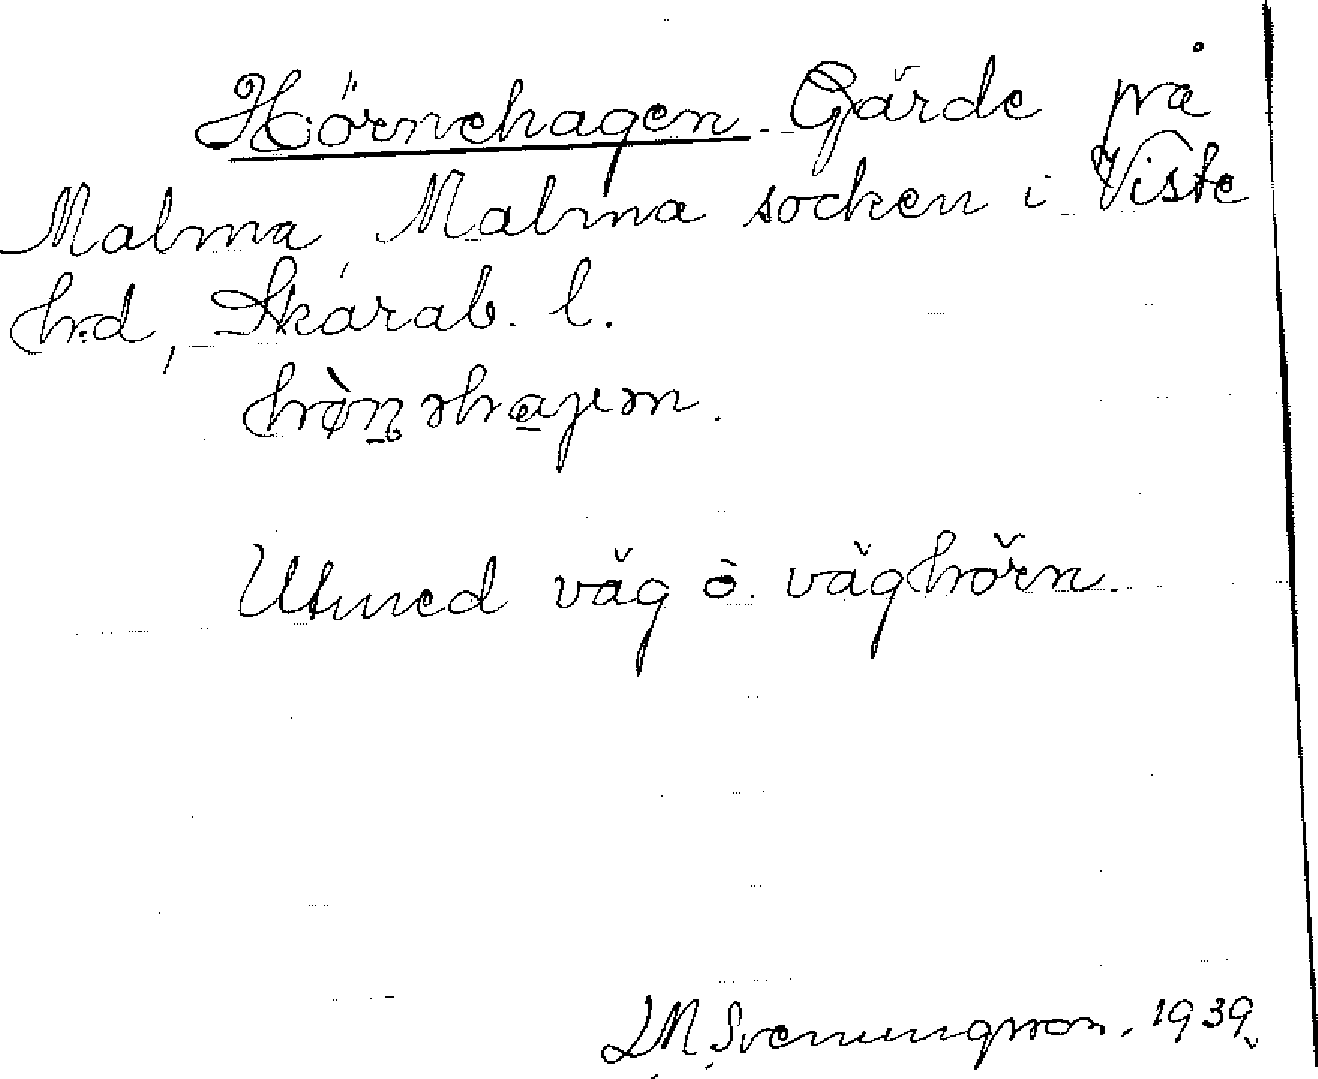 Hörnehagen. Gärde på
Malma, Malma socken i Viste
hd, Skarab. l.
Utmed väg ö. väghörn.
1939.